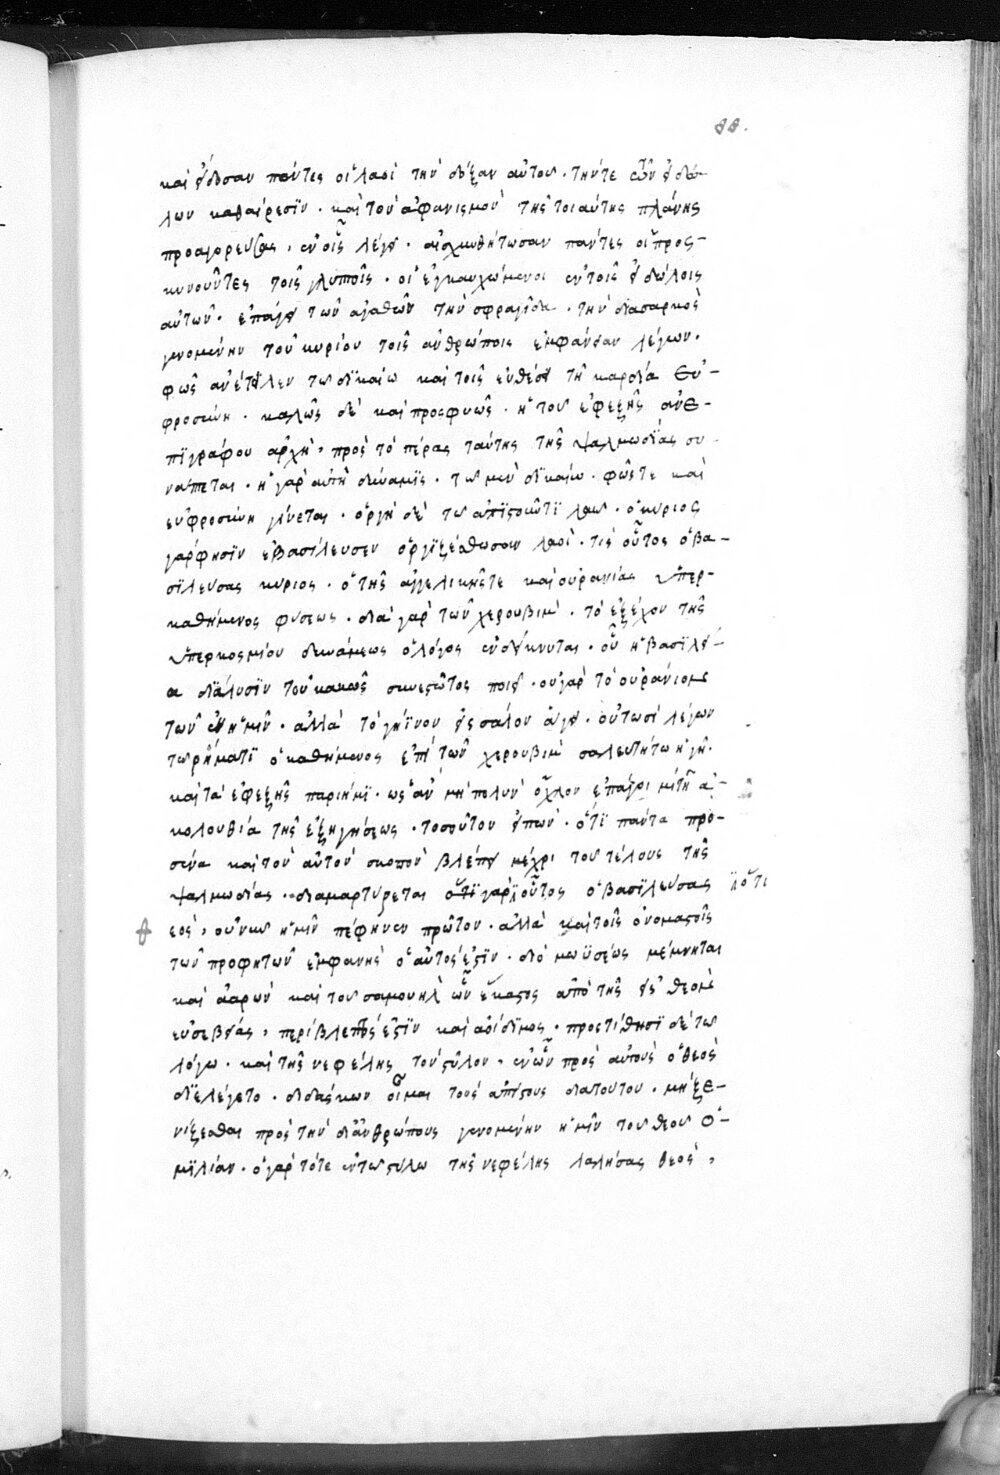 88.
καὶ εἴδοσαν πάντες οἱ λαοὶ τὴν δόξαν αὐτοῦ · τήν τε τῶν εἰδώ-
λων καθαίρεσϊν · καὶ τὸν ἀφανισμὸν τῆς τοιαύτης πλάνης
προαγορεύσας, ἐν οἷς λέγει · αἰσχυνθήτωσαν πάντες οἱ προς-
κυνοῦντες τοῖς γλυπτοῖς · οἱ ἐγκαυχώμενοι ἐν τοῖς εἰδώλοις
αὐτῶν · ἐπάγει τῶν ἀγαθῶν τὴν σφραγῖδα · τὴν διὰ σαρκὸς
γενομένην τοῦ κυρίου τοῖς ἀνθρώποις ἐμφάνειαν λέγων ·
φῶς ἀνέτειλεν τω δϊκαίω καὶ τοῖς εὐθέσι τῇ καρδία εὐ-
φροσύνη · καλῶς δὲ καὶ προσφυῶς · ἡ τοῦ ἐφεξῆς ἀνε-
πϊγράφου ἀρχὴ, πρὸς τὸ πέρας ταύτης τῆς ψαλμωδΐας συ
νάπτεται · ἡ γὰρ αὐτὴ δύναμϊς · τω μὲν δϊκαίω · φῶς τε καὶ
εὐφροσύνη γίνεται · ὀργὴ δὲ τω ἀπϊστοῦντϊ λαω · ὁ κύριος
γάρ φησϊν ἐβασίλευσεν ὀργϊζέσθωσαν λαοὶ · τίς οὗτος ὁ βα-
σϊλεύσας κύριος · ὁ τῆς ἀγγελικῆς τε καὶ οὐρανίας ὑπερ-
καθήμενος φύσεως · διὰ γὰρ τῶν χερουβὶμ · τὸ ἐξέχον τῆς
ὑπερκοσμίου δυνάμεως ὁ λόγος ἐνδείκνυται · οὗ ἡ βασϊλεί-
α διάλυσϊν τοῦ κακῶς συνεστῶτος ποιεῖ · οὐ γὰρ τὸ οὐράνιον
τῶν ἐν ἡμῖν · ἀλλὰ τὸ γήϊνον εἰς σάλον ἄγει · οὑτωσὶ λέγων
τω ῥήματϊ ὁ καθήμενος ἐπὶ τῶν χερουβὶμ σαλευθήτω ἡ γῆ ·
καὶ τὰ ἐφεξῆς παρίημϊ · ὡς ἂν μὴ πολὺν ὄχλον ἐπάγοι μϊ τῇ ἀ-
κολουθία τῆς ἐξηγήσεως · τοσοῦτον εἰπὼν · ὅτϊ πάντα πρὸ-
σένα καὶ τὸν αὐτὸν σκοπὸν βλέπει μέχρι τοῦ τέλους τῆς
ψαλμωδίας · διαμαρτύρεται ὅτϊ γὰρ οὗτος ὁ βασϊλεύσας ὅτι
εος, οὐ νῦν ἡμῖν πέφηνεν πρῶτον · ἀλλὰ καὶ τοῖς ὀνομαστοῖς
τῶν προφητῶν ἐμφανὴς ὁ αὐτός ἐστϊν · διὸ μωϋσέως μέμνηται
καὶ ἀαρὼν καὶ τοῦ σαμουὴλ ὧν ἕκαστος ἀπὸ τῆς εἰς θεὸν
εὐσεβείας, περίβλεπτός ἐστϊν καὶ ἀοίδϊμος · προστίθησϊ δὲ τω
λόγω · καὶ τῆς νεφέλης τὸν στῦλον, ἐν ὧ πρὸς αὐτοὺς ὁ θεὸς
δϊελέγετο · διδάσκων οἶμαι τοὺς ἀπίστους διὰ τούτου · μὴ ξε-
νίζεσθαι πρὸς τὴν δι' ἀνθρώπους γενομένην ἡμῖν τοῦ θεοῦ ὁ-
μϊλίαν · ὁ γὰρ τότε ἐν τω στύλω τῆς νεφέλης λαλήσας θεὸς,